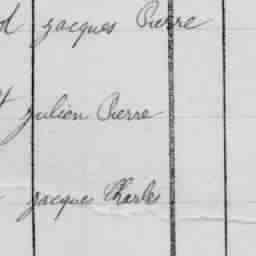 jacques Pierre
julien Pierre
jacque Charles